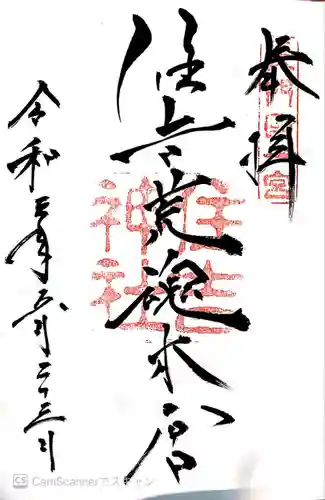 奉拝
住吉荒魂本宮
住吉
神社
令和五年六月二十三日
CS CamScannerでスキャン